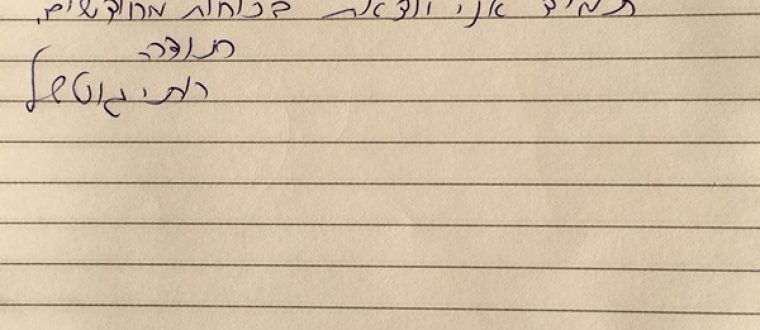 תמיד אני יוצאת בכוחות מחודשים.
תודה
רתי גוטשל